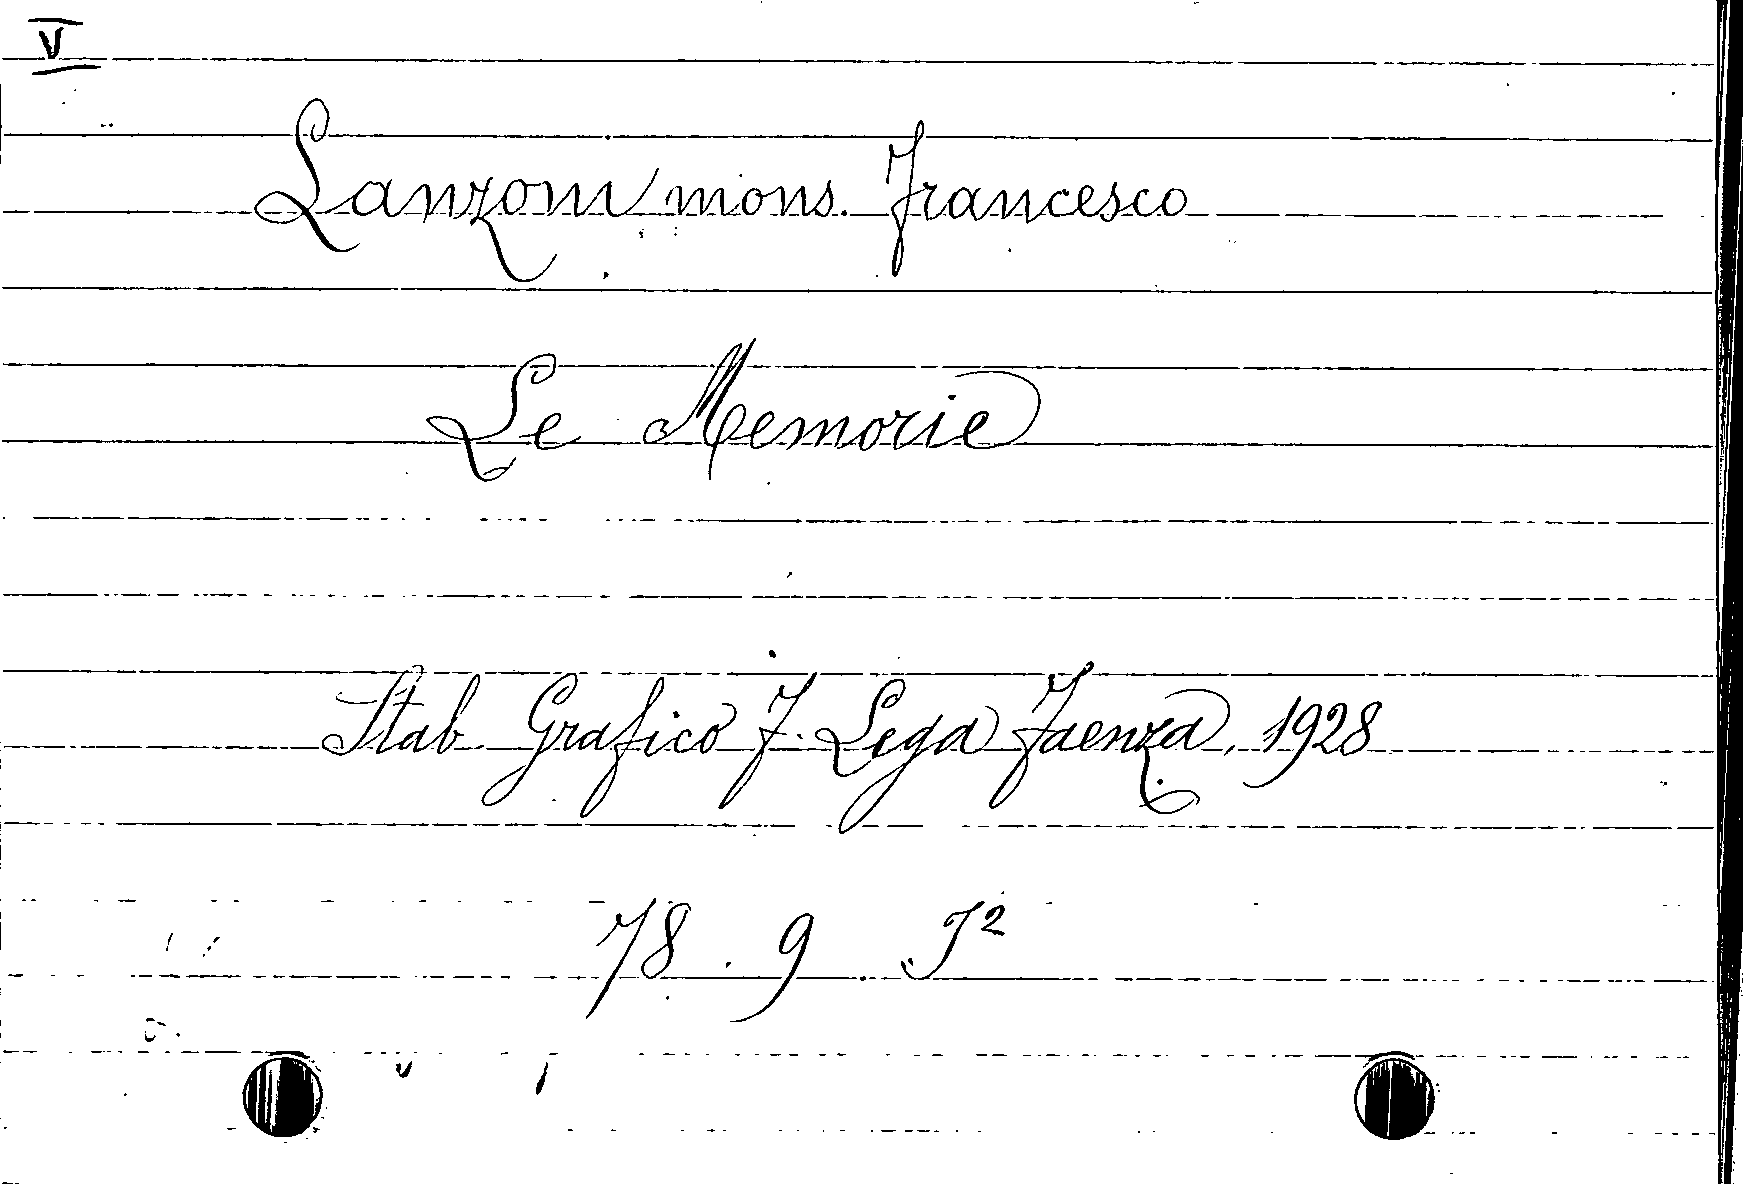 V
Lanzoni mons. Francesco
Le Memorie
Stab. Grafico F. Lega Faenza, 1928
78 . 9 . I²